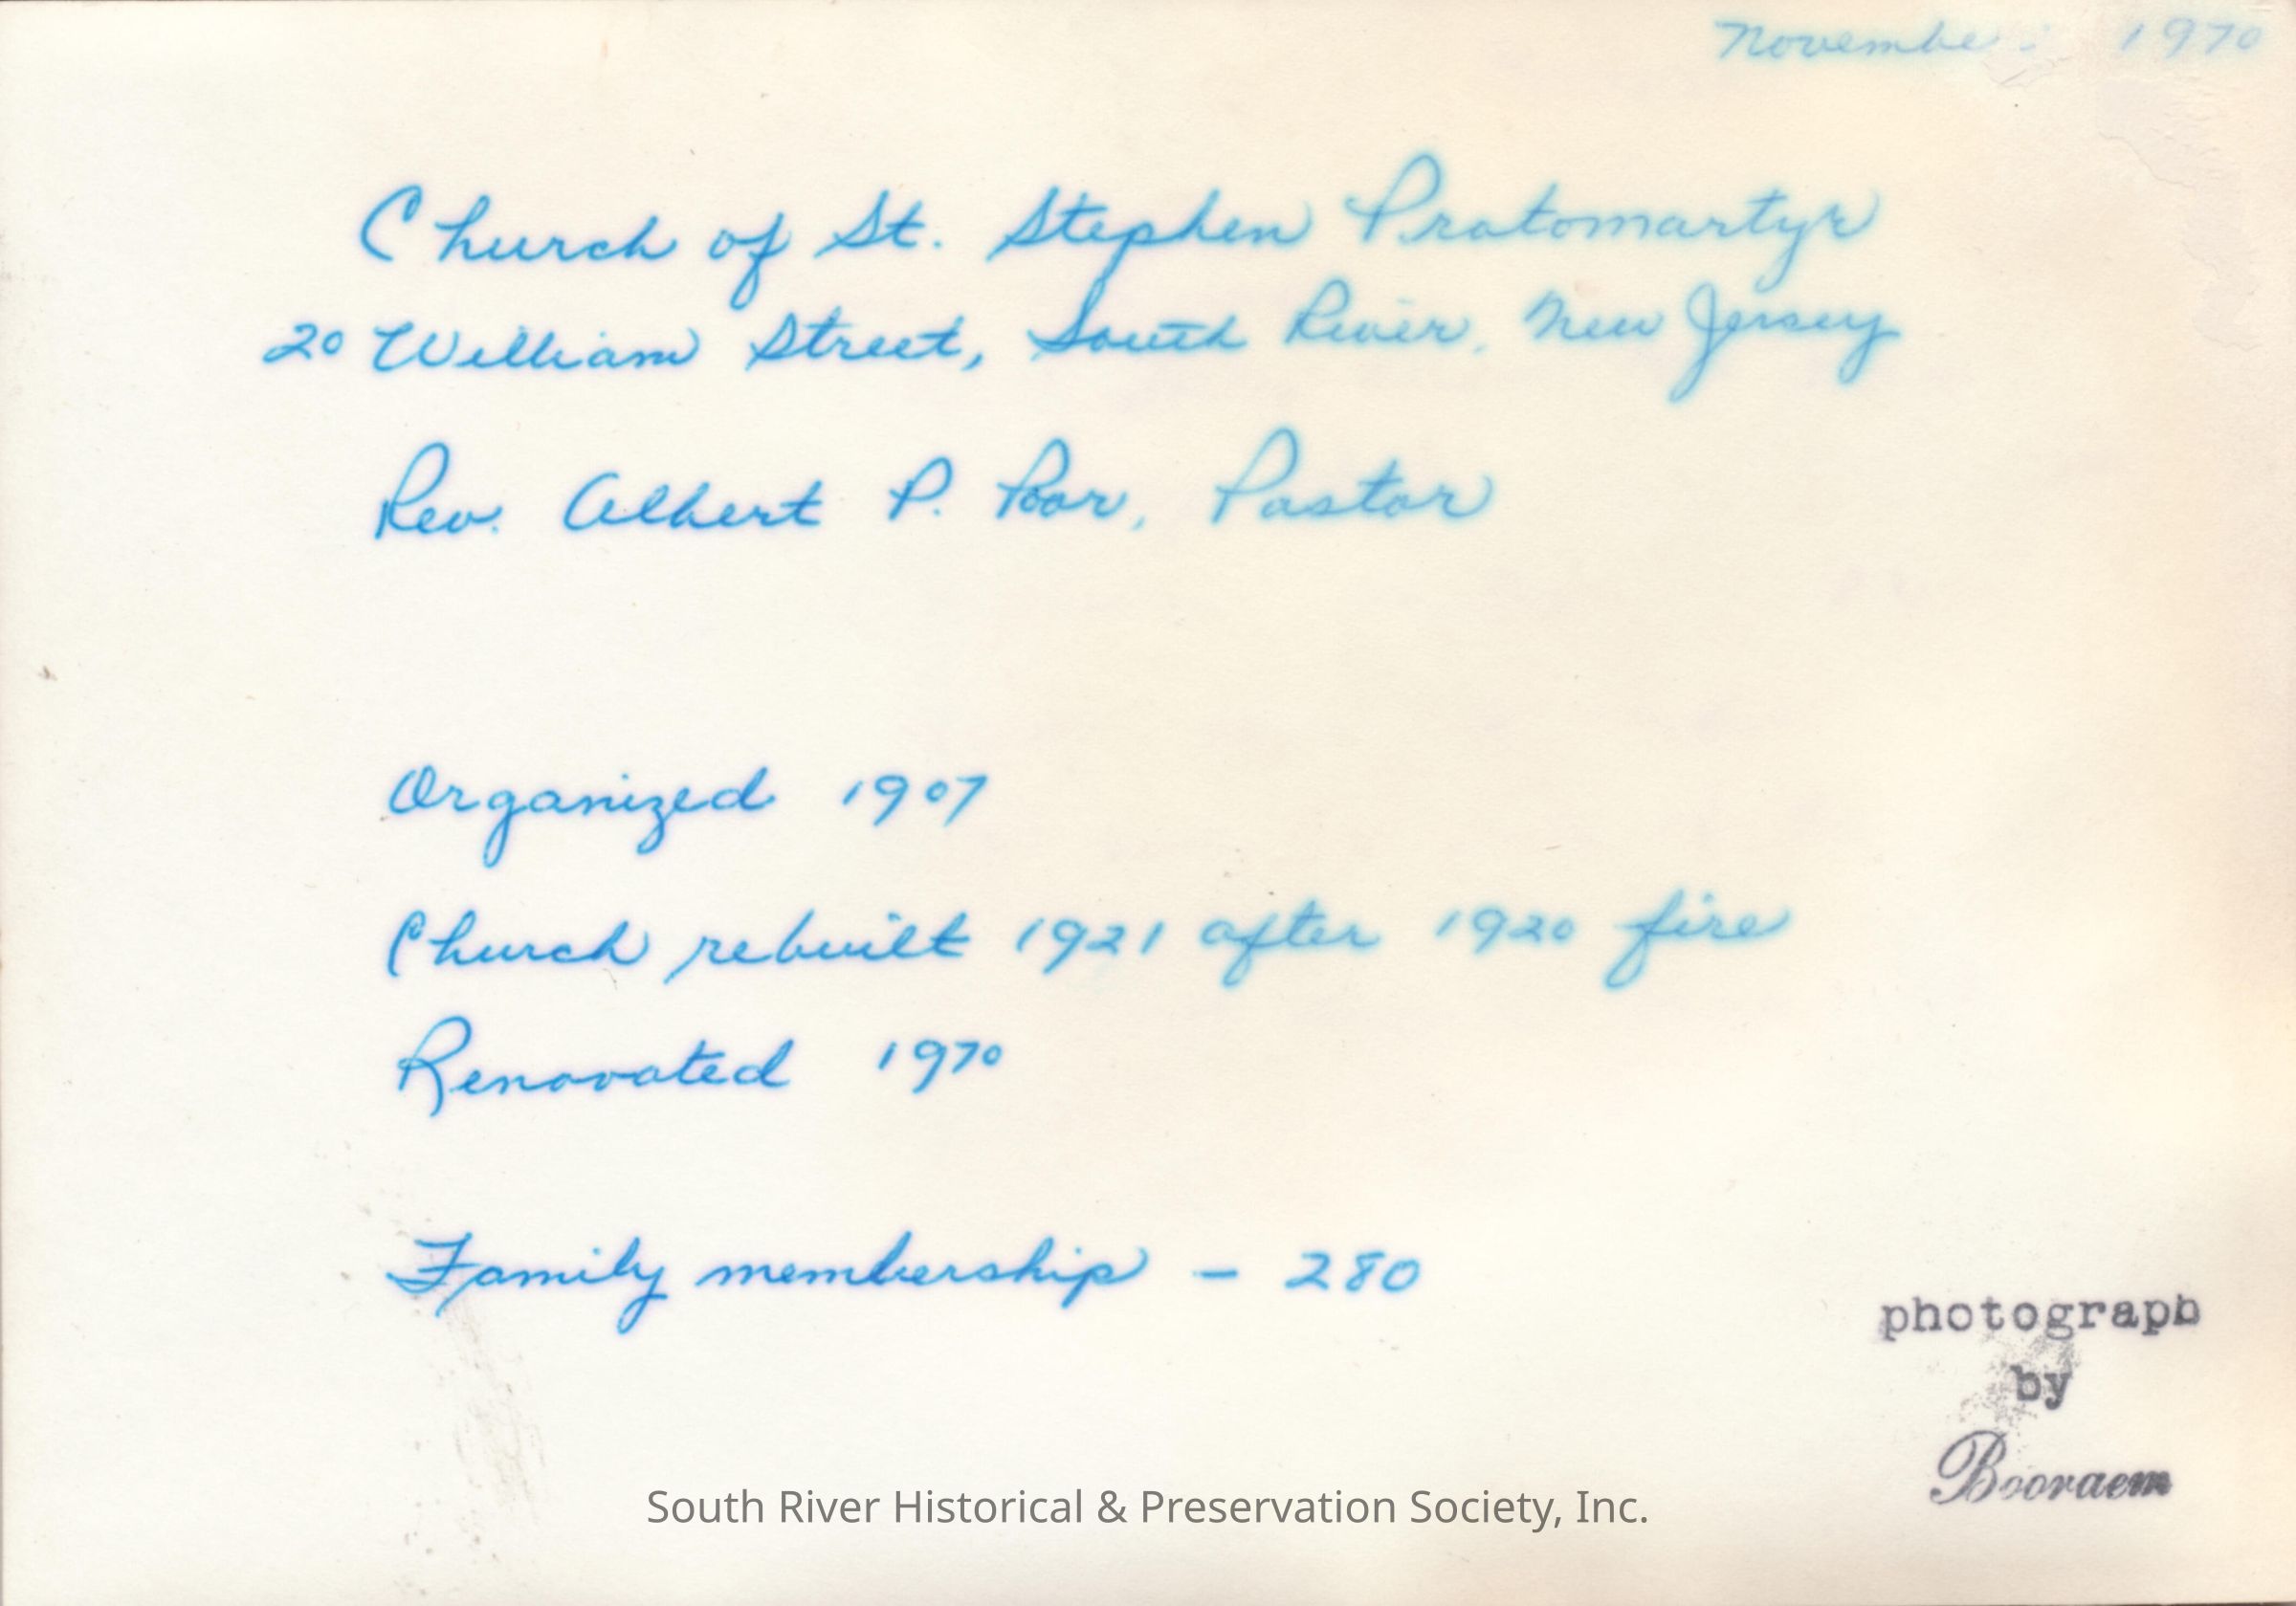 November 1970
Church of St. Stephen Protomartyr
20 William Street, South River, New Jersey
Rev. Albert P. Poor, Pastor
Organized 1907
Church rebuilt 1921 after 1920 fire
Renovated 1970
Family membership - 280
photograph
by
Booraem
South River Historical & Preservation Society, Inc.